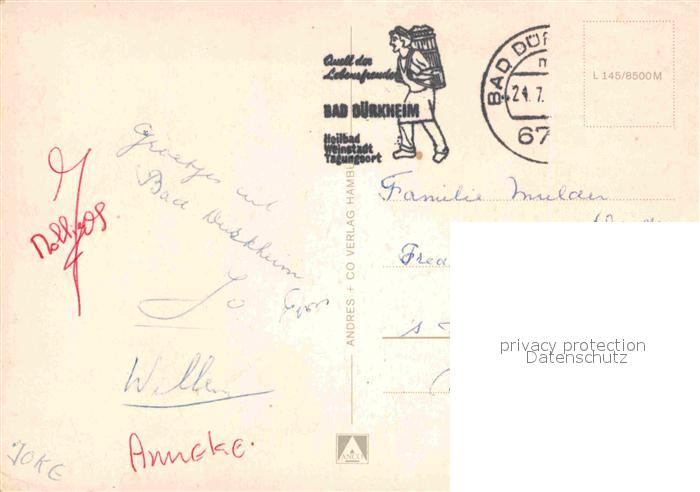 Quell der
Lebensfreude
BAD DÜRKHEIM
Heilbad
Weinstadt
Tagungsort
BAD DÜR
24.7.
67
L 145/8500 M
Groetjes uit
Bad Durkheim
Jo
Willem
Anneke.
JOKE
ANDRES + CO VERLAG HAMB
Familie Mulder
Fred
's
ANCO
privacy protection
Datenschutz